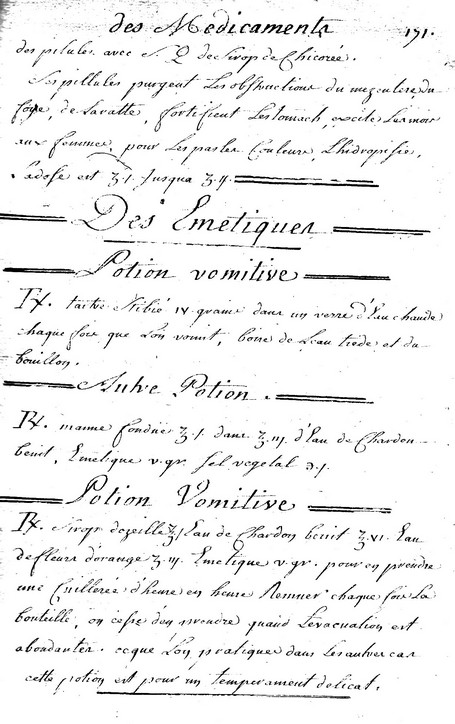 des Medicaments 171.
des pilules avec S. Q de Sirop de Chicorée.
Ses pillules purgent Les obstructions du mezentere du
foye, de La ratte, fortifient Lestomach, excite Les mois
aux femmes, pour Les pasles Couleurs, Lhidropisie,
La dose est ʒ.i. Jusqua ʒ.ij.
Des Emetiques
Potion vomitive
℞. tartre stibié iv grains dans un verre d'Eau chaude
chaque fois que Lon vomit, boire de Leau tiede et du
bouillon.
Autre Potion.
℞. manne fondüe ʒ.i. dans ʒ.iij. d'Eau de Chardon
benit, Emetique v.gr. sel vegetal ʒ.i.
Potion Vomitive
℞. Sirop dozeille ʒi Eau de Chardon benit ʒ.vi. Eau
de fleurs d'orange ʒ.ij. Emetique v gr. pour en prendre
une Cuillerée d'heure en heure Remuer chaque fois La
bouteille, on cesse d'en prendre quand Levacuation est
abondante. ceque Lon pratique dans Les autres cas
cette potion est pour un temperament delicat.